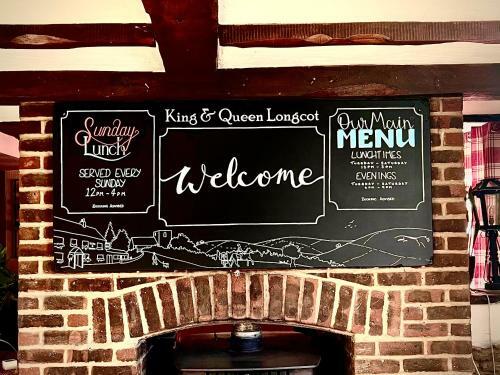 King & Queen Longcot
Sunday
Lunch
SERVED EVERY
SUNDAY
12PM - 4PM
BOOKING ADVISED
Welcome
Our Main
MENU
LUNCHTIMES
TUESDAY - SATURDAY
EVENINGS
TUESDAY - SATURDAY
BOOKING ADVISED